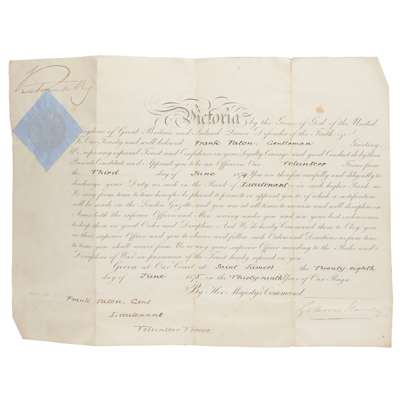 Victoria by the Grace of God of the United
Kingdom of Great Britain and Ireland Queen Defender of the Faith &c
To Our Trusty and well beloved Frank Paton, Gentleman Greeting
We reposing especial Trust and Confidence in your Loyalty Courage and good Conduct do by these
Presents Constitute and Appoint you to be an Officer in Our Volunteer Forces from
the Third day of June 187 You are therefore carefully and diligently to
discharge your Duty as such in the Rank of Lieutenant or in such higher Rank as
We may from time to time hereafter be pleased to promote or appoint you to of which a notification
will be made in the London Gazette and you are at all times to exercise and well discipline in
Arms both the inferior Officers and Men serving under you and use your best endeavours
to keep them in good Order and Discipline And We do hereby Command them to Obey you
as their superior Officer and you to observe and follow such Orders and Directions as from time
to time you shall receive from Us or any your superior Officer according to the Rules and
Discipline of War in pursuance of the Trust hereby reposed in you
Given at Our Court at Saint James's the Twenty eighth
day of June 187 in the Thirty ninth Year of Our Reign
By Her Majesty's Command
Frank Paton, Gent
Lieutenant
Volunteer Forces